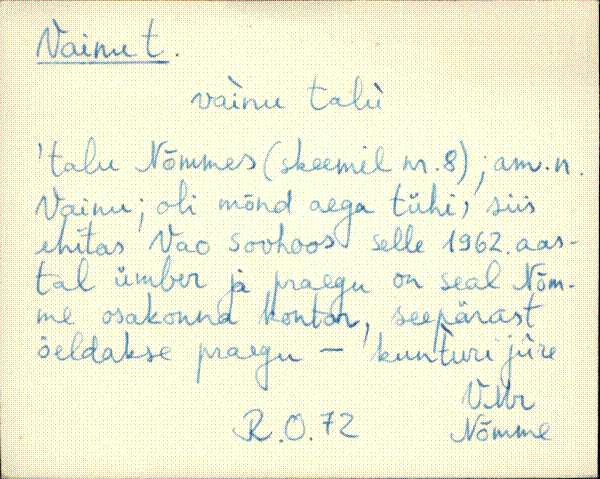 Vainu t.
vàinu talù
'talu Nõmmes (skeemil nr. 8); am.n.
Vainu; oli mõnd aega tühi, siis
ehitas Vao sovhoos selle 1962. aas-
tal ümber ja praegu on seal Nõm-
me osakonna kontor, seepärast
öeldakse praegu — 'kuntùri jūre
VMr
R.O.72 Nõmme